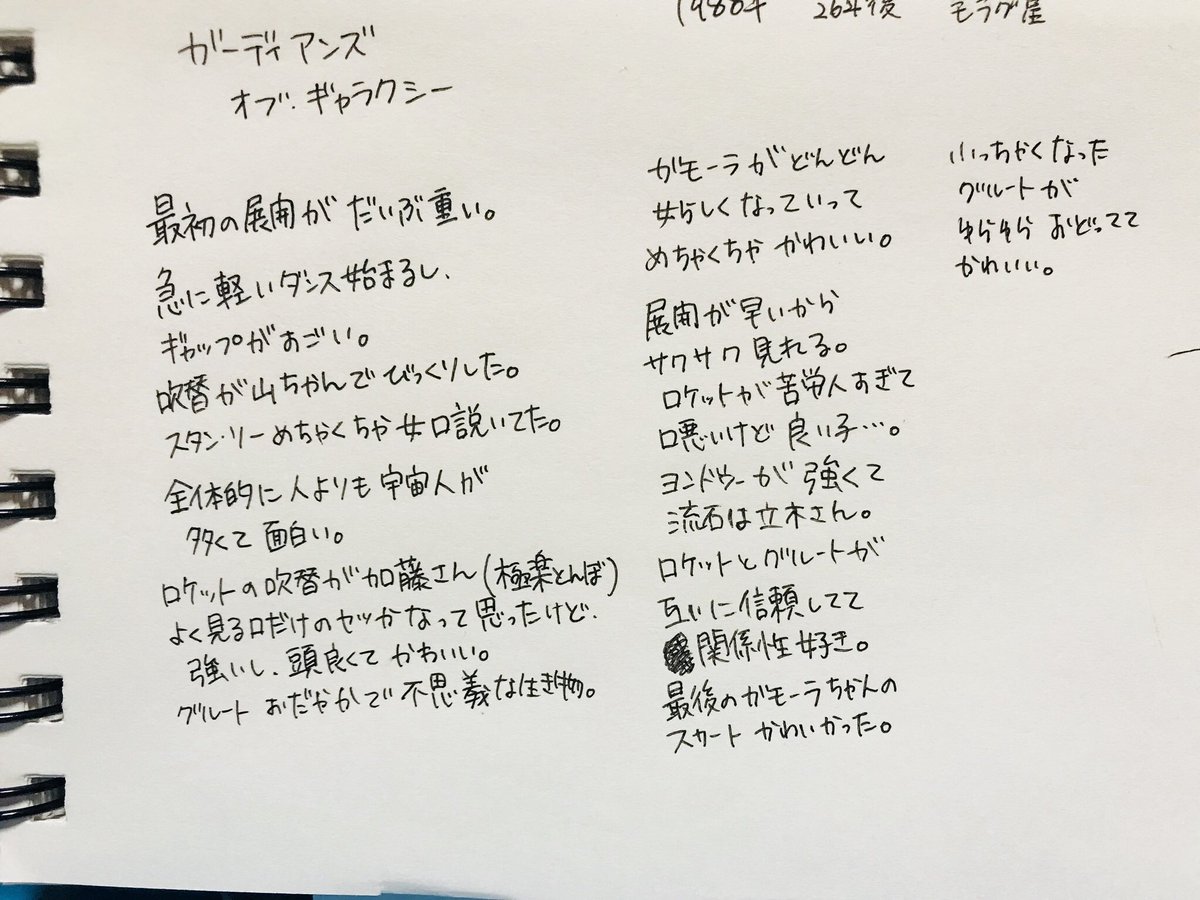 1988年 26年後 モラグ星
ガーディアンズ
オブ・ギャラクシー
最初の展開がだいぶ重い。
急に軽いダンス始まるし、
ギャップがすごい。
吹替が山ちゃんでびっくりした。
スタン・リーめちゃくちゃ女口説いてた。
全体的に人よりも宇宙人が
多くて面白い。
ロケットの吹替が加藤さん(極楽とんぼ)
よく見る口だけのヤツかなって思ったけど、
強いし、頭良くてかわいい。
グルートおだやかで不思議な生き物。
ガモーラがどんどん
女らしくなっていって
めちゃくちゃかわいい。
展開が早いから
サクサク見れる。
ロケットが苦労人すぎて
口悪いけど良い子…。
ヨンドゥーが強くて
流石は立木さん。
ロケットとグルートが
互いに信頼してて
関係性好き。
最後のガモーラちゃんの
スカートかわいかった。
小っちゃくなった
グルートが
ゆらゆらおどってて
かわいい。